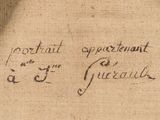 portrait appartenant
à Guérault